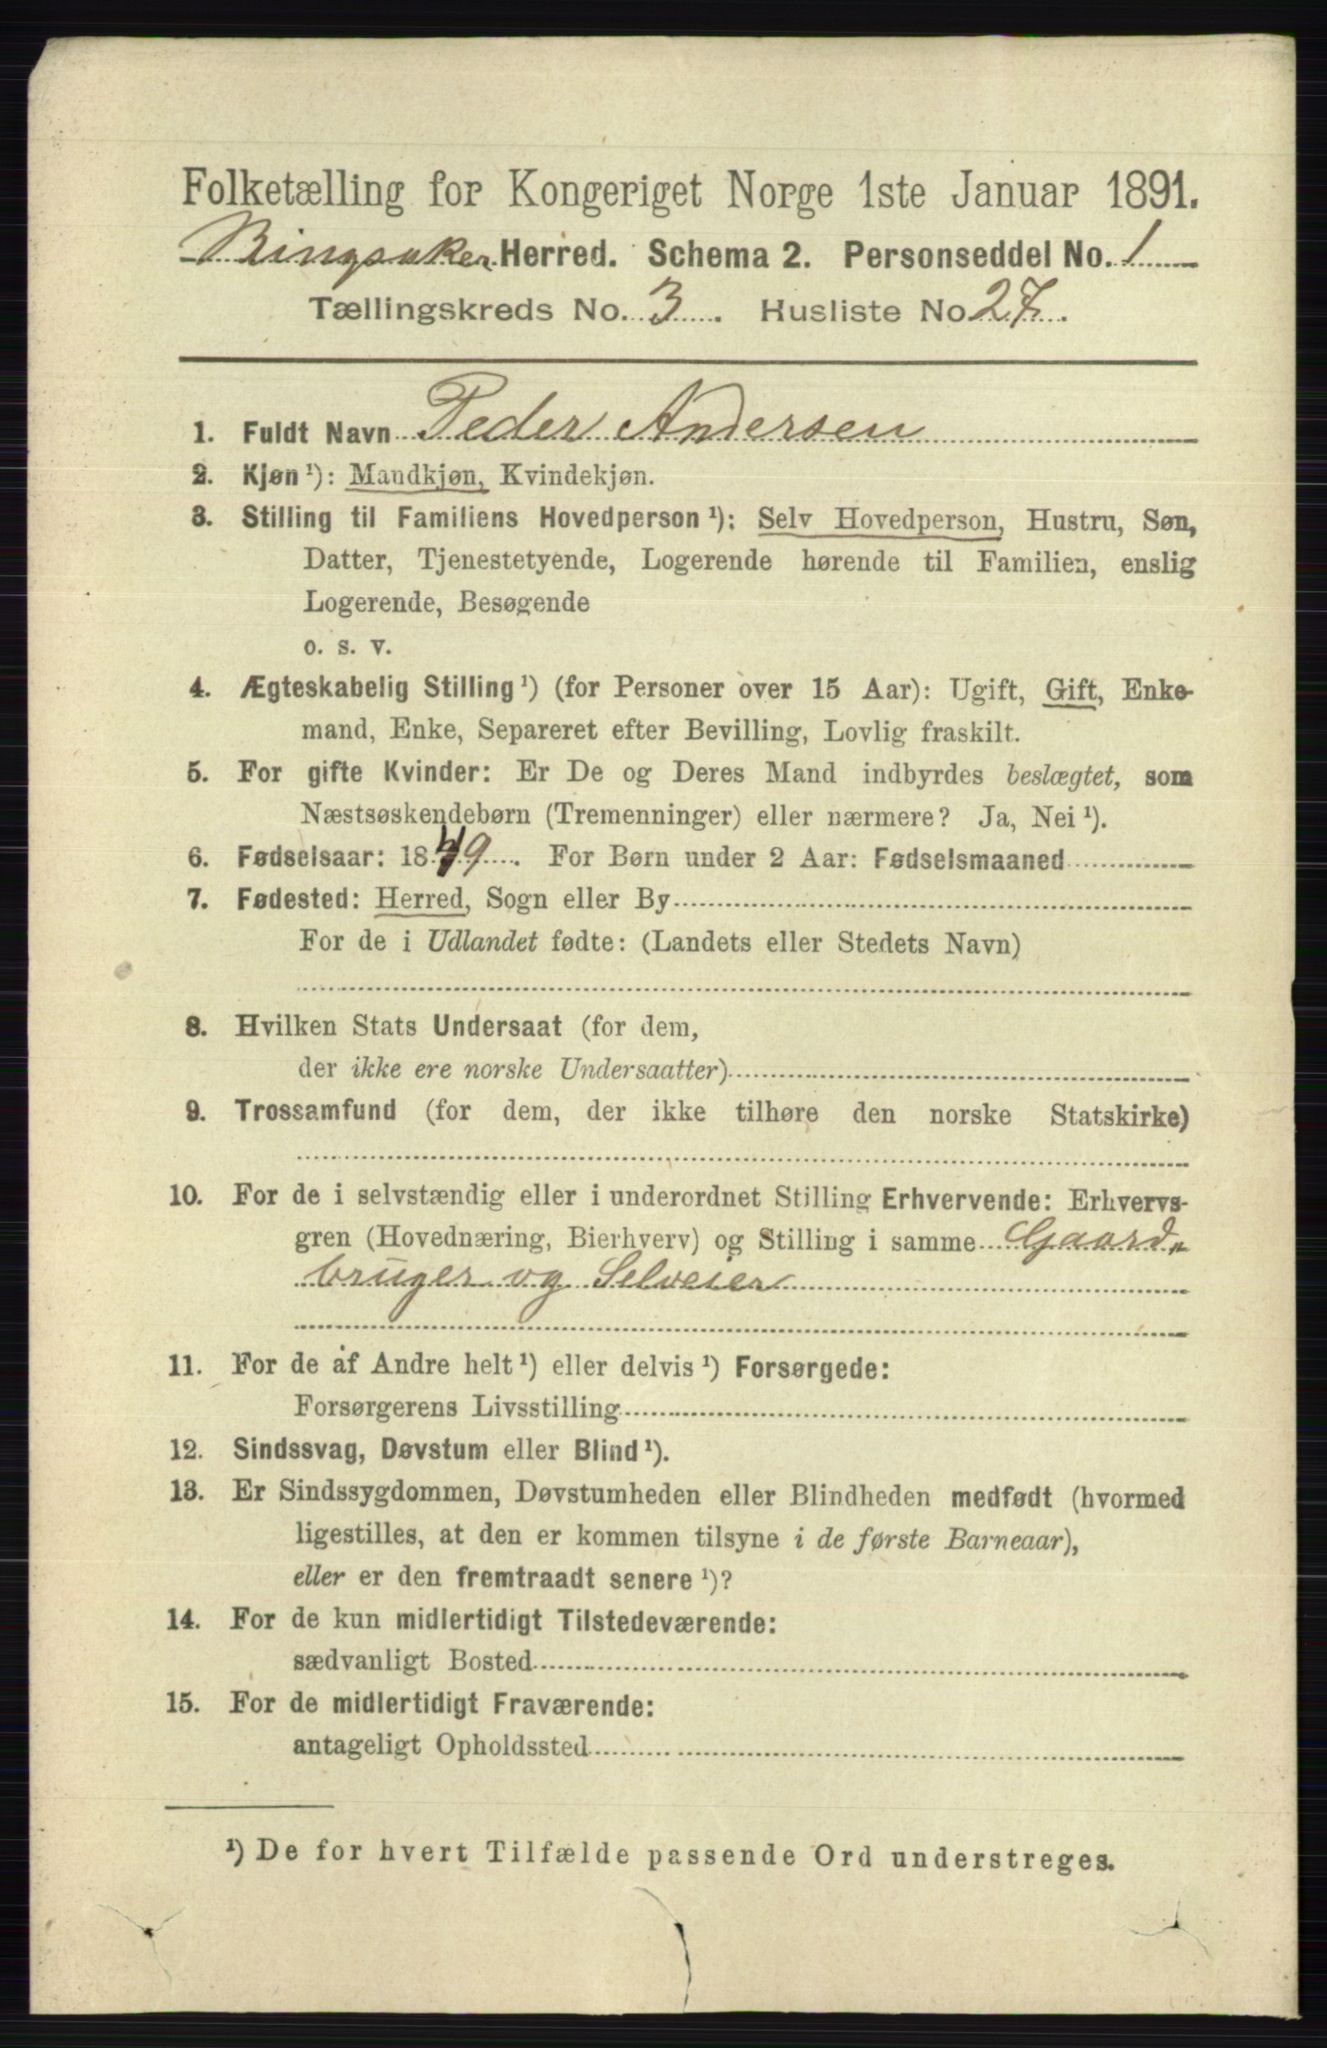 Folketælling for Kongeriget Norge 1ste Januar 1891.
Ringsaker Herred. Schema 2. Personseddel No. 1
Tællingskreds No. 3. Husliste No 27.
1. Fuldt Navn Peder Andersen
2. Kjøn ¹): Mandkjøn, Kvindekjøn.
3. Stilling til Familiens Hovedperson ¹): Selv Hovedperson, Hustru, Søn,
Datter, Tjenestetyende, Logerende hørende til Familien, enslig
Logerende, Besøgende
o. s. v.
4. Ægteskabelig Stilling ¹) (for Personer over 15 Aar): Ugift, Gift, Enke-
mand, Enke, Separeret efter Bevilling, Lovlig fraskilt.
5. For gifte Kvinder: Er De og Deres Mand indbyrdes beslægtet, som
Næstsøskendebørn (Tremenninger) eller nærmere? Ja, Nei ¹).
6. Fødselsaar: 1849. For Børn under 2 Aar: Fødselsmaaned
7. Fødested: Herred, Sogn eller By
For de i Udlandet fødte: (Landets eller Stedets Navn)
8. Hvilken Stats Undersaat (for dem,
der ikke ere norske Undersaatter)
9. Trossamfund (for dem, der ikke tilhøre den norske Statskirke)
10. For de i selvstændig eller i underordnet Stilling Erhvervende: Erhvervs-
gren (Hovednæring, Bierhverv) og Stilling i samme Gaard„
bruger og Selveier
11. For de af Andre helt ¹) eller delvis ¹) Forsørgede:
Forsørgerens Livsstilling
12. Sindssvag, Døvstum eller Blind ¹).
13. Er Sindssygdommen, Døvstumheden eller Blindheden medfødt (hvormed
ligestilles, at den er kommen tilsyne i de første Barneaar),
eller er den fremtraadt senere ¹)?
14. For de kun midlertidigt Tilstedeværende:
sædvanligt Bosted
15. For de midlertidigt Fraværende:
antageligt Opholdssted
¹) De for hvert Tilfælde passende Ord understreges.